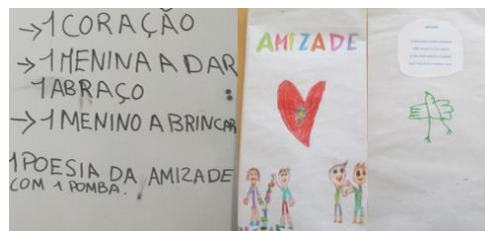 →1 CORAÇÃO
→1 MENINA A DAR
1 ABRAÇO
→1 MENINO A BRINCAR
1 POESIA DA AMIZADE
COM 1 POMBA.
AMIZADE